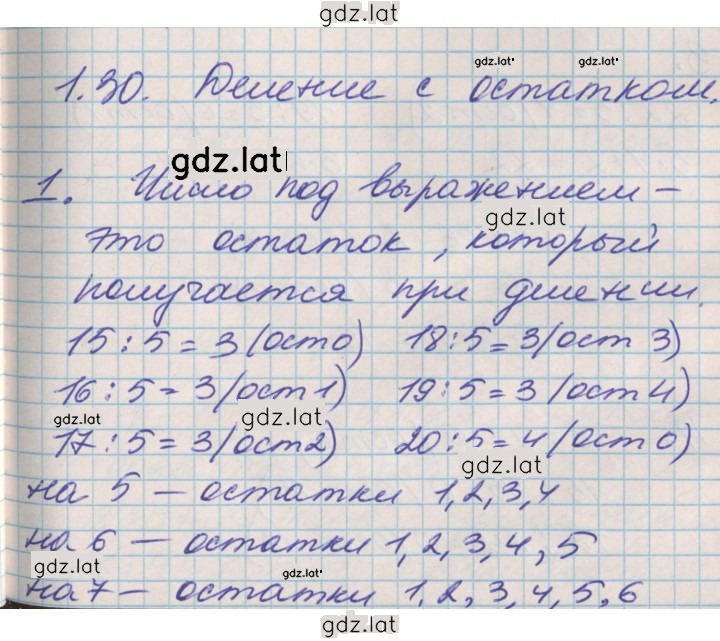 gdz.lat
gdz.lat
1.30. Деление с остатком.
gdz.lat
1. Число под выражением -
gdz.lat
это остаток, который
получается при делении.
15 : 5 = 3 (ост 0) 18 : 5 = 3 (ост 3)
16 : 5 = 3 (ост 1) 19 : 5 = 3 (ост 4)
gdz.lat gdz.lat
17 : 5 = 3 (ост 2) 20 : 5 = 4 (ост 0)
gdz.lat
на 5 — остатки 1, 2, 3, 4
на 6 — остатки 1, 2, 3, 4, 5
gdz.lat gdz.lat
на 7 — остатки 1, 2, 3, 4, 5, 6
gdz.lat